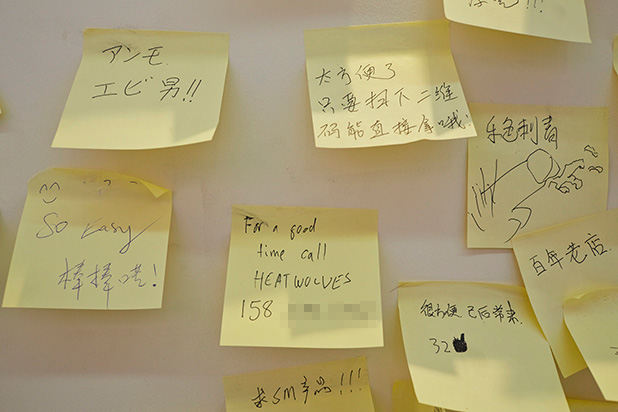 アンモ
エビ男!!
太方便了
只要扫下二维
码能直接拿哦!
乐色刺青
So Easy
棒棒哒!
For a good
time call
HEATWOLVES
158
百年老店
很方便 已后常来
32
求SM